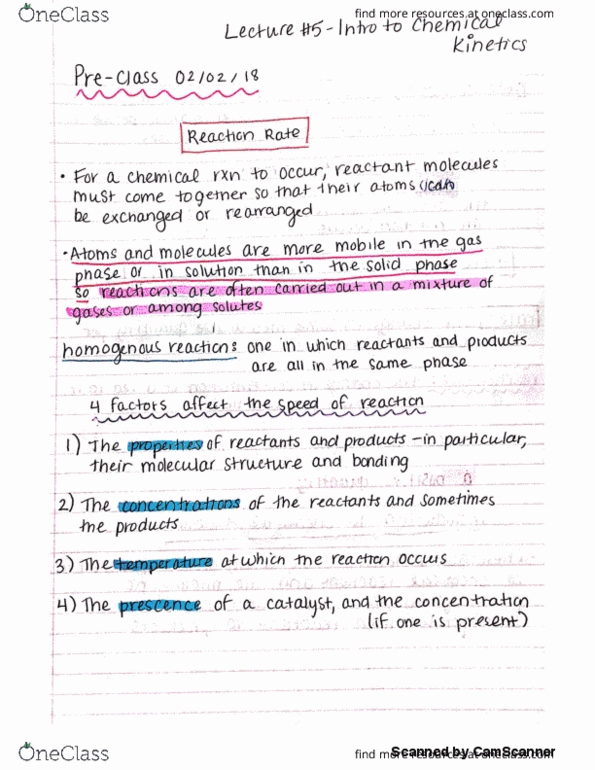 OneClass
find more resources at oneclass.com
Lecture #5 - Intro to Chemical
Kinetics
Pre-Class 02/02/18
Reaction Rate
• For a chemical rxn to occur, reactant molecules
must come together so that their atoms can
be exchanged or rearranged
• Atoms and molecules are more mobile in the gas
phase or in solution than in the solid phase
so reactions are often carried out in a mixture of
gases or among solutes
homogenous reaction: one in which reactants and products
are all in the same phase
4 factors affect the speed of reaction
1) The properties of reactants and products - in particular,
their molecular structure and bonding
2) The concentrations of the reactants and sometimes
the products
3) The temperature at which the reaction occurs
4) The prescence of a catalyst, and the concentration
(if one is present)
OneClass
find more resources at oneclass.com
Scanned by CamScanner